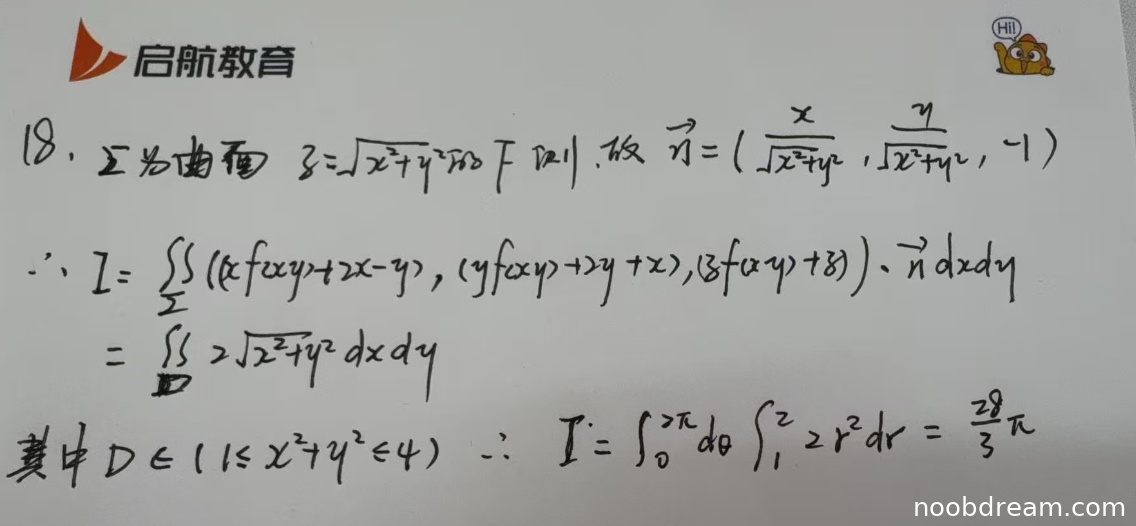 启航教育
Hi!
18. Σ为曲面 z=√(x²+y²)的下侧.故 n⃗=(x/√(x²+y²), y/√(x²+y²), -1)
∴ I=∬_Σ((xf(xy)+2x-y), (yf(xy)+2y+x), (zf(xy)+z))·n⃗ dxdy
=∬_D 2√(x²+y²) dxdy
其中 D∈(1≤x²+y²≤4) ∴ I=∫₀^{2π}dθ∫₁² 2r²dr=28/3 π
noobdream.com